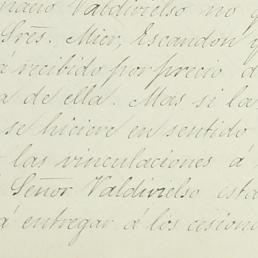 nacio Valdivielso no q
Sres. Mier, Escandon y
a recibido por precio d
a de ella. Mas si la
se hiciere en sentido
las vinculaciones á
Señor Valdivielso esta
á entregar á los cesion